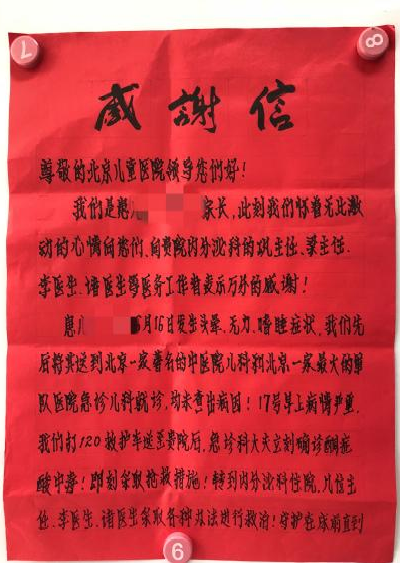 7
8
感謝信
尊敬的北京儿童医院领导您们好！
我们是患儿 家长，此刻我们怀着无比激
动的心情向您们、向贵院内分泌科的巩主任、梁主任、
李医生、诸医生等医务工作者表示万分的感谢！
患儿 5月16日发生头晕、无力、嗜睡症状，我们先
后将其送到北京一家著名的中医院儿科和北京一家最大的军
队医院急诊儿科就诊，均未查出病因！17号早上病情严重，
我们打120救护车送至贵院后，急诊科大夫立刻确诊酮症
酸中毒！即刻采取抢救措施！转到内分泌科住院，
任、李医生、诸医生采取各种办法进行救治！守护在床前直到
9